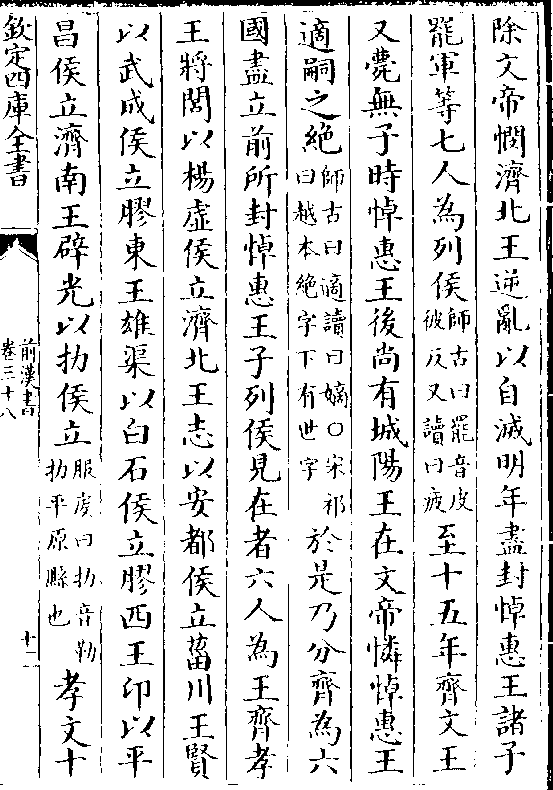 除文帝憫濟北王逆亂以自滅明年盡封悼惠王諸子
罷軍等七人為列侯師古曰罷音皮彼反又讀曰疲至十五年齊文王
又薨無子時悼惠王後尚有城陽王在文帝憐悼惠王
適嗣之絶師古曰適讀曰嫡○宋祁曰越本絶字下有世字於是乃分齊為六
國盡立前所封悼惠王子列侯見在者六人為王齊孝
王將閭以楊虛侯立濟北王志以安都侯立菑川王賢
以武成侯立膠東王雄渠以白石侯立膠西王印以平
昌侯立濟南王辟光以扐侯立服虔曰扐音勒扐平原縣也孝文十
欽定四庫全書
前漢書
卷三十八
十二